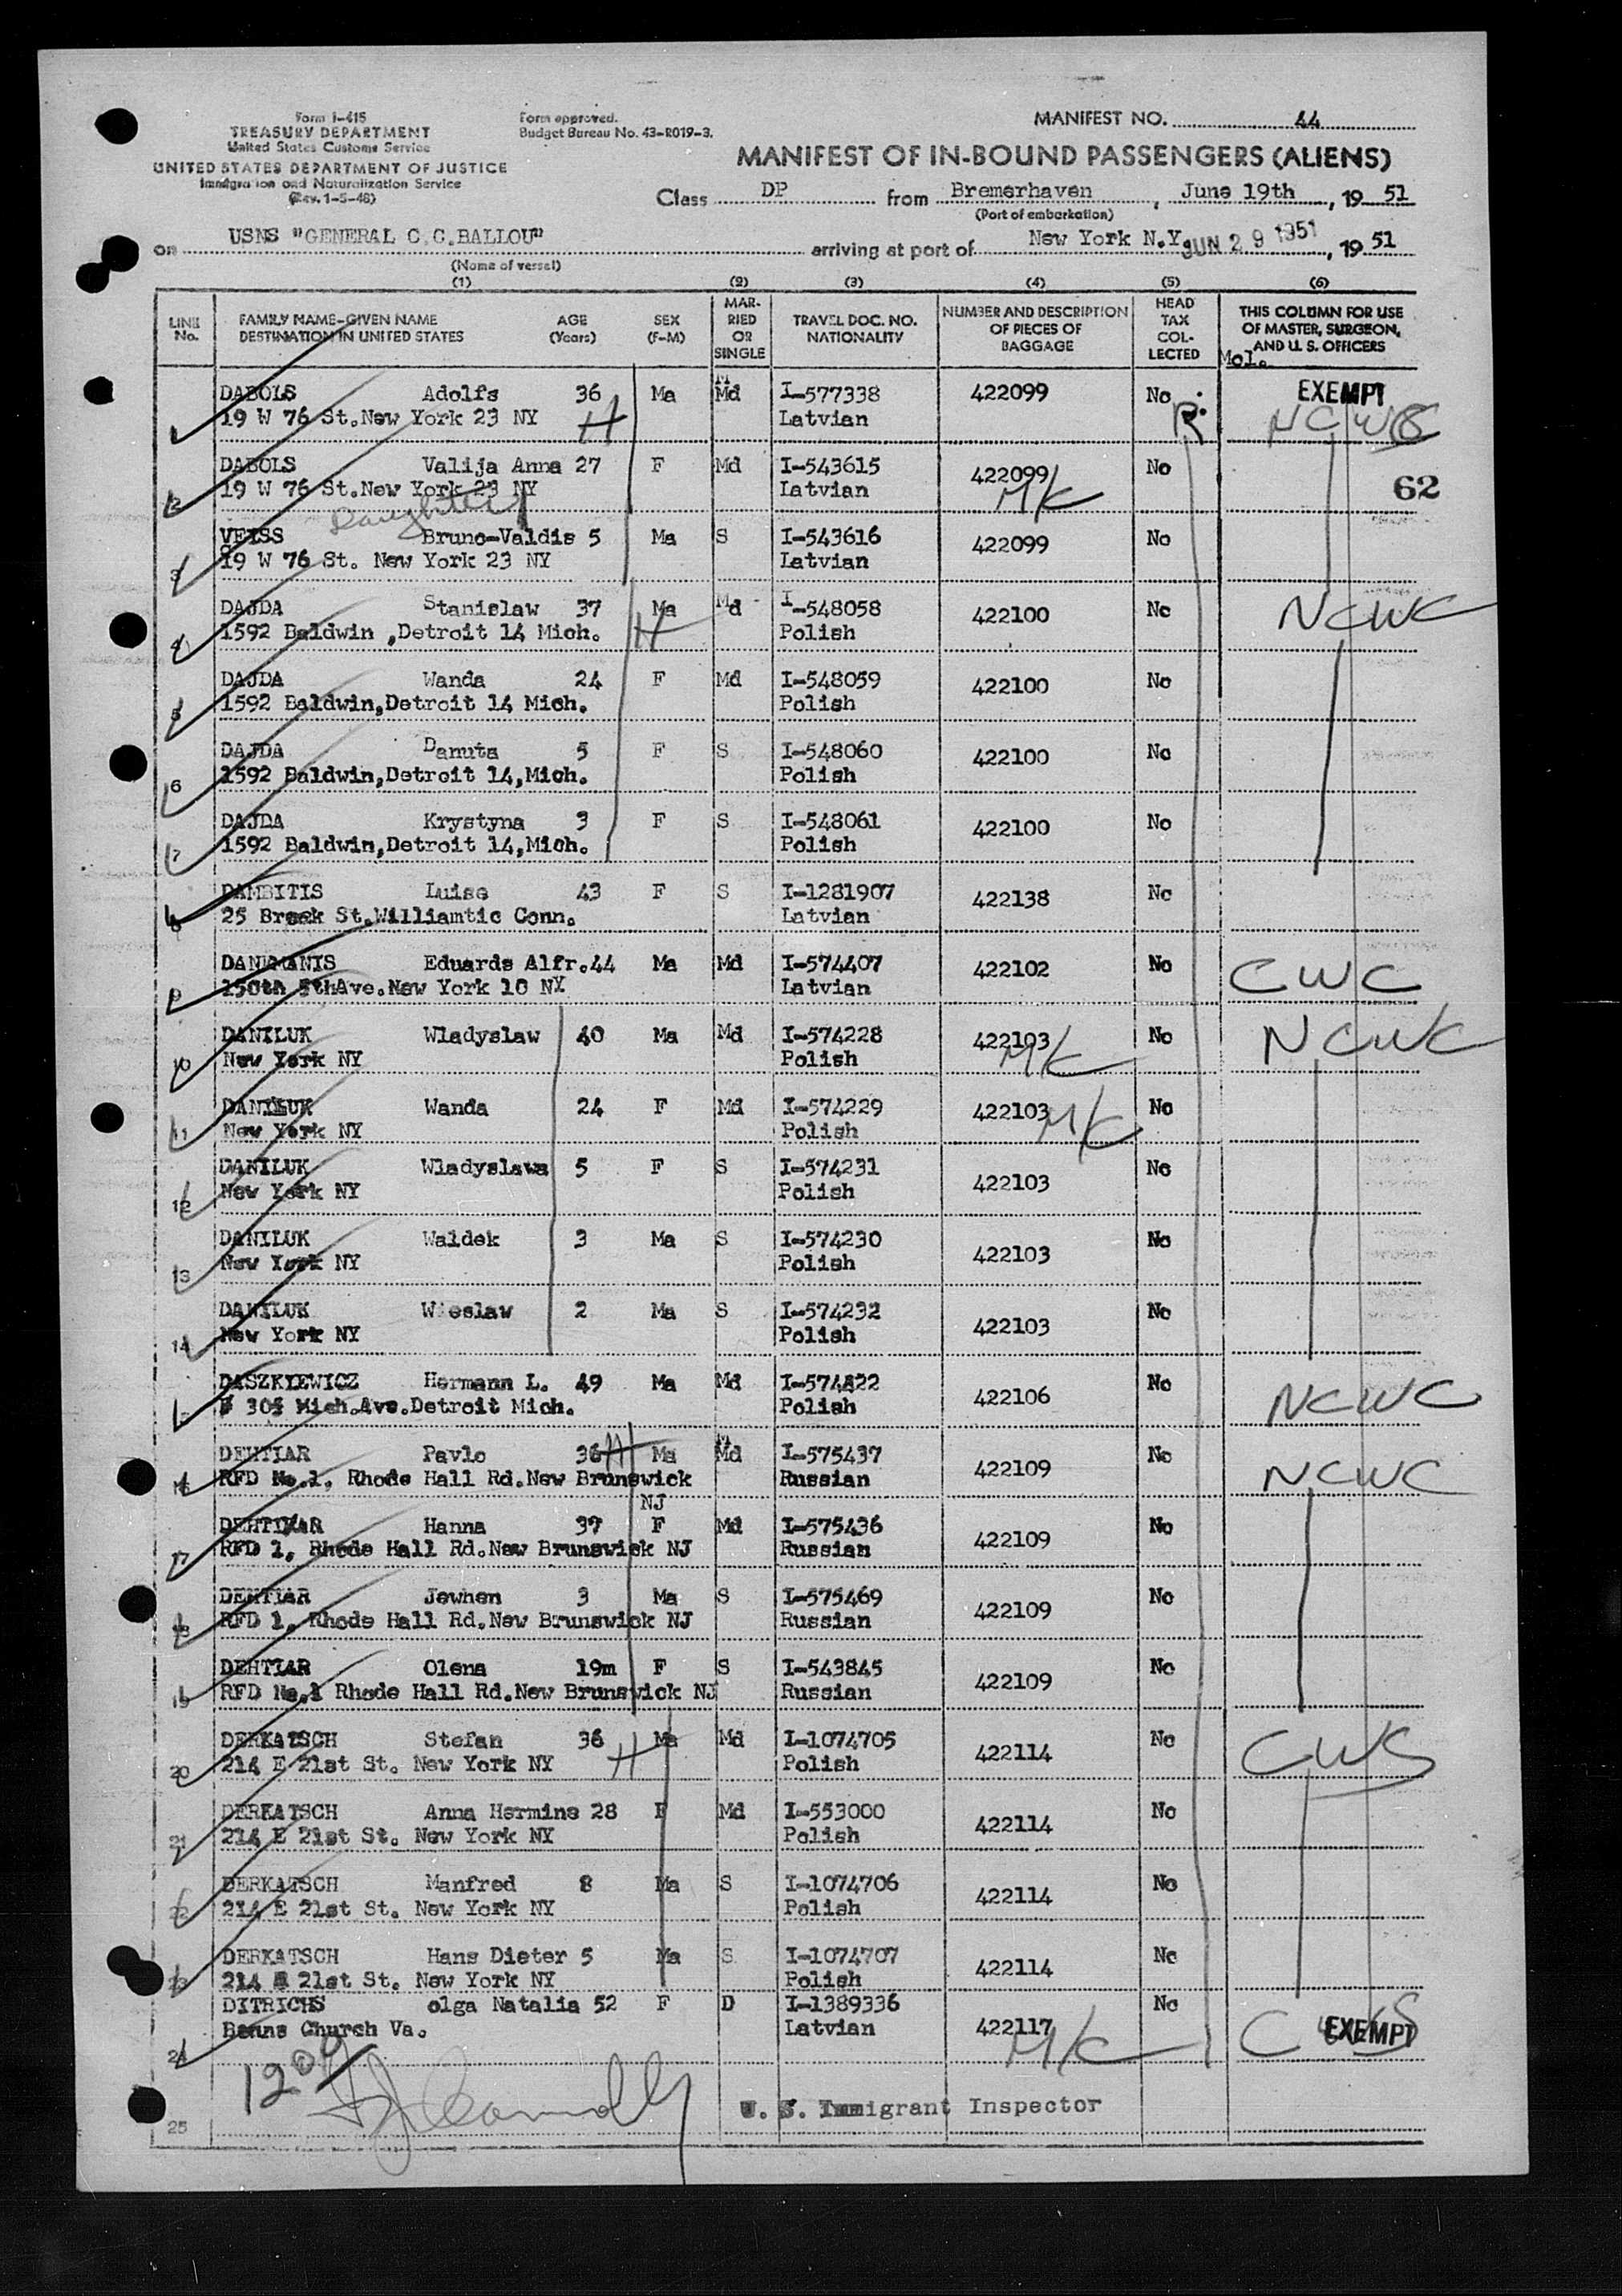 Form I-415
TREASURY DEPARTMENT
United States Customs Service
UNITED STATES DEPARTMENT OF JUSTICE
Immigration and Naturalization Service
(Rev. 1-5-48)
Form approved.
Budget Bureau No. 43-R019-3.
MANIFEST NO. 44
MANIFEST OF IN-BOUND PASSENGERS (ALIENS)
Class DP from Bremerhaven, June 19th, 19 51
(Port of embarkation)
on USNS "GENERAL C.C.BALLOU" arriving at port of New York N.Y. JUN 29 1951, 19 51
(Name of vessel)
(1) (2) (3) (4) (5) (6)
LINE No. FAMILY NAME-GIVEN NAME DESTINATION IN UNITED STATES AGE (Years) SEX (F-M) MARRIED OR SINGLE TRAVEL DOC. NO. NATIONALITY NUMBER AND DESCRIPTION OF PIECES OF BAGGAGE HEAD TAX COLLECTED THIS COLUMN FOR USE OF MASTER, SURGEON, AND U. S. OFFICERS
Mol.
DABOLS Adolfs 36 Ma Md I-577338 422099 No EXEMPT
19 W 76 St.New York 23 NY H Latvian R. NCWC
2 DABOLS Valija Anna 27 F Md I-543615 422099 No
19 W 76 St.New York 23 NY Latvian MK 62
Daughter
3 VEISS Bruno-Valdis 5 Ma S I-543616 422099 No
19 W 76 St. New York 23 NY Latvian
4 DAJDA Stanislaw 37 Ma Md I-548058 422100 No NCWC
1592 Baldwin ,Detroit 14 Mich. H Polish
5 DAJDA Wanda 24 F Md I-548059 422100 No
1592 Baldwin,Detroit 14 Mich. Polish
6 DAJDA Danuta 5 F S I-548060 422100 No
1592 Baldwin,Detroit 14,Mich. Polish
7 DAJDA Krystyna 3 F S I-548061 422100 No
1592 Baldwin,Detroit 14,Mich. Polish
8 DAMBITIS Luise 43 F S I-1281907 422138 No
25 Breek St.Williamtic Conn. Latvian
9 DANEMANIS Eduards Alfr.44 Ma Md I-574407 422102 No CWC
150th 5thAve.New York 10 NY Latvian
10 DANILUK Wladyslaw 40 Ma Md I-574228 422103 No NCWC
New York NY Polish MK
11 DANILUK Wanda 24 F Md I-574229 422103 No
New York NY Polish MK
12 DANILUK Wladyslawa 5 F S I-574231 422103 No
New York NY Polish
13 DANILUK Waldek 3 Ma S I-574230 422103 No
New York NY Polish
14 DANILUK Wieslaw 2 Ma S I-574232 422103 No
New York NY Polish
DASZKIEWICZ Hermann L. 49 Ma Md I-574822 422106 No NCWC
305 Mich.Ave.Detroit Mich. Polish
16 DEHTIAR Pavlo 36 H Ma Md I-575437 422109 No NCWC
RFD No.1, Rhode Hall Rd.New Brunswick NJ Russian
17 DEHTIAR Hanna 37 F Md I-575436 422109 No
RFD 1, Rhode Hall Rd.New Brunswick NJ Russian
18 DEHTIAR Jewhen 3 Ma S I-575469 422109 No
RFD 1, Rhode Hall Rd.New Brunswick NJ Russian
19 DEHTIAR Olena 19m F S I-543845 422109 No
RFD No.1 Rhode Hall Rd.New Brunswick NJ Russian
20 DERKATSCH Stefan 36 Ma Md I-1074705 422114 No CWS
214 E 21st St. New York NY H Polish
21 DERKATSCH Anna Hermine 28 F Md I-553000 422114 No
214 E 21st St. New York NY Polish
22 DERKATSCH Manfred 8 Ma S I-1074706 422114 No
214 E 21st St. New York NY Polish
23 DERKATSCH Hans Dieter 5 Ma S I-1074707 422114 No
214 E 21st St. New York NY Polish
24 DITRICHS olga Natalia 52 F D I-1389336 422117 No CWS EXEMPT
Benns Church Va. Latvian MK
1200
25 U. S. Immigrant Inspector